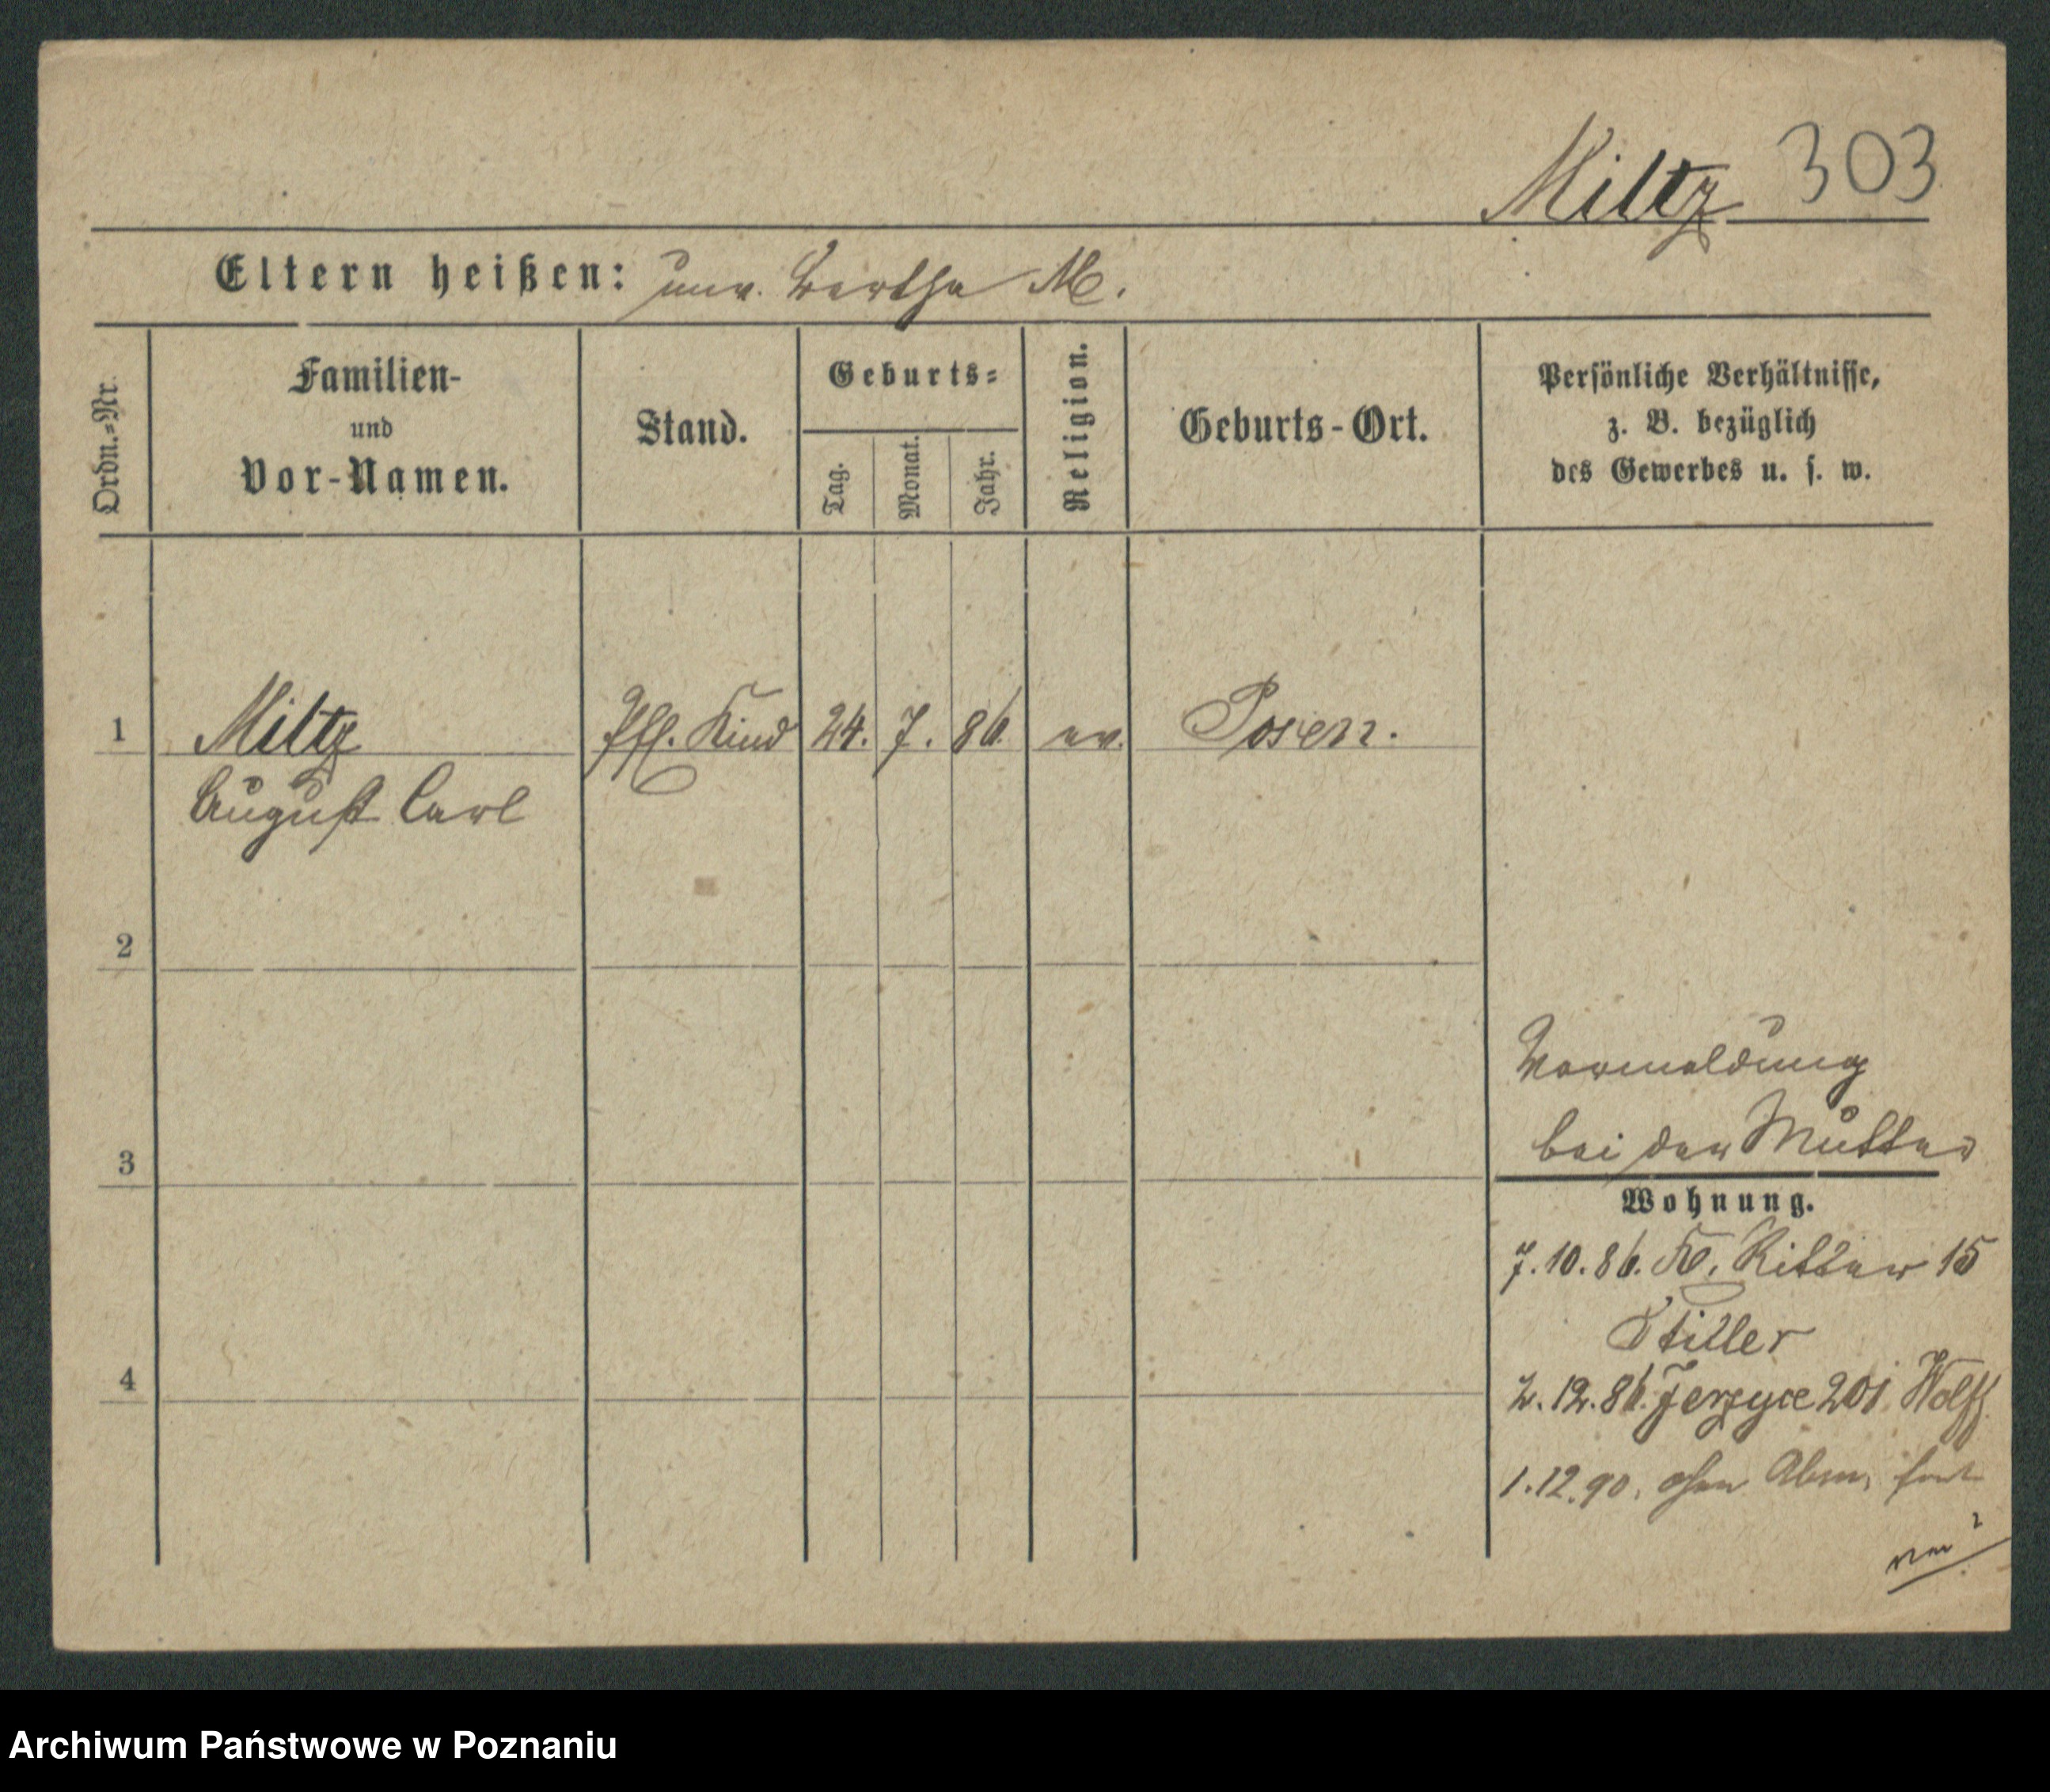 Miltz 303
Eltern heißen: unv. Bertha M.
Ordn.=Nr.
Familien-
und
Vor-Namen.
Stand.
Geburts=
Tag.
Monat.
Jahr.
Religion.
Geburts-Ort.
Persönliche Verhältnisse,
z. B. bezüglich
des Gewerbes u. s. w.
1 Miltz Pfl. Kind 24. 7. 86. ev. Posen.
August Carl
2
Vormeldung
bei der Mutter
3
Wohnung.
7.10.86. Kl. Ritter 15
Stiller
4
2.12.86. Jerzyce 201 Wolff
1.12.90. ohne Abm. fort
Archiwum Państwowe w Poznaniu